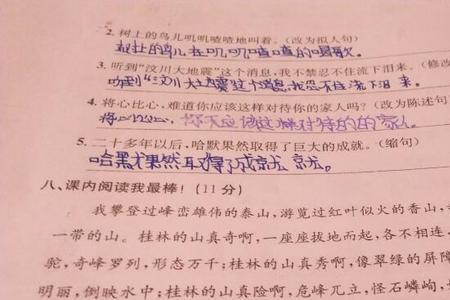 2. 树上的鸟儿叽叽喳喳地叫着。(改为拟人句)
树上的鸟儿在叽叽喳喳的唱歌。
3. 听到“汶川大地震”这个消息,我不禁忍不住流下泪来。(修改
听到“汶川大地震”这个消息,我忍不住流下泪来.
4. 将心比心,难道你应该这样对待你的家人吗?(改为陈述句
将心比心,你不应该这样对待你的家人。
5. 二十多年以后,哈默果然取得了巨大的成就。(缩句)
哈默果然取得了成就
八、课内阅读我最棒!(11 分)
我攀登过峰峦雄伟的泰山,游览过红叶似火的香山,
一带的山。桂林的山真奇啊,一座座拔地而起,各不相连,
驼,奇峰罗列,形态万千;桂林的山真秀啊,像翠绿的屏障
明丽,倒映水中;桂林的山真险啊,危峰兀立,怪石嶙峋,